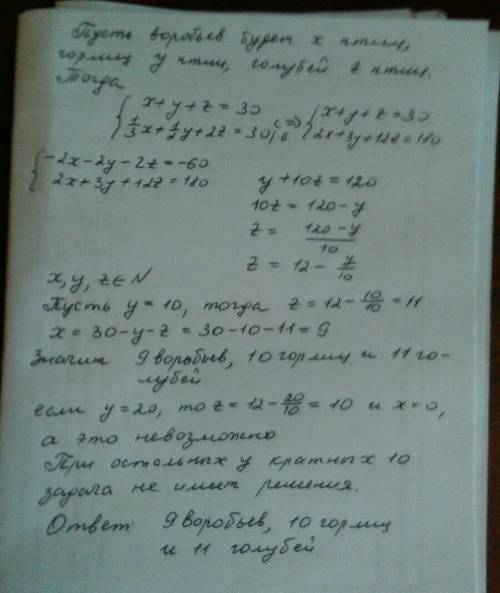 Пусть воробьев будет x птиц,
горлиц y птиц, голубей z птиц.
Тогда
{ x+y+z=30 <=> { x+y+z=30
{ 1/3x+1/2y+2z=30|·6 { 2x+3y+12z=180
{ -2x-2y-2z=-60
{ 2x+3y+12z=180
y+10z=120
10z=120-y
z= (120-y)/10
z=12-y/10
x, y, z ∈ N
Пусть y=10, тогда z=12-10/10=11
x=30-y-z=30-10-11=9
Значит 9 воробьев, 10 горлиц и 11 го-
лубей
если y=20, то z=12-20/10=10 и x=0,
а это невозможно
При остальных y кратных 10
задача не имеет решения.
Ответ 9 воробьев, 10 горлиц
и 11 голубей